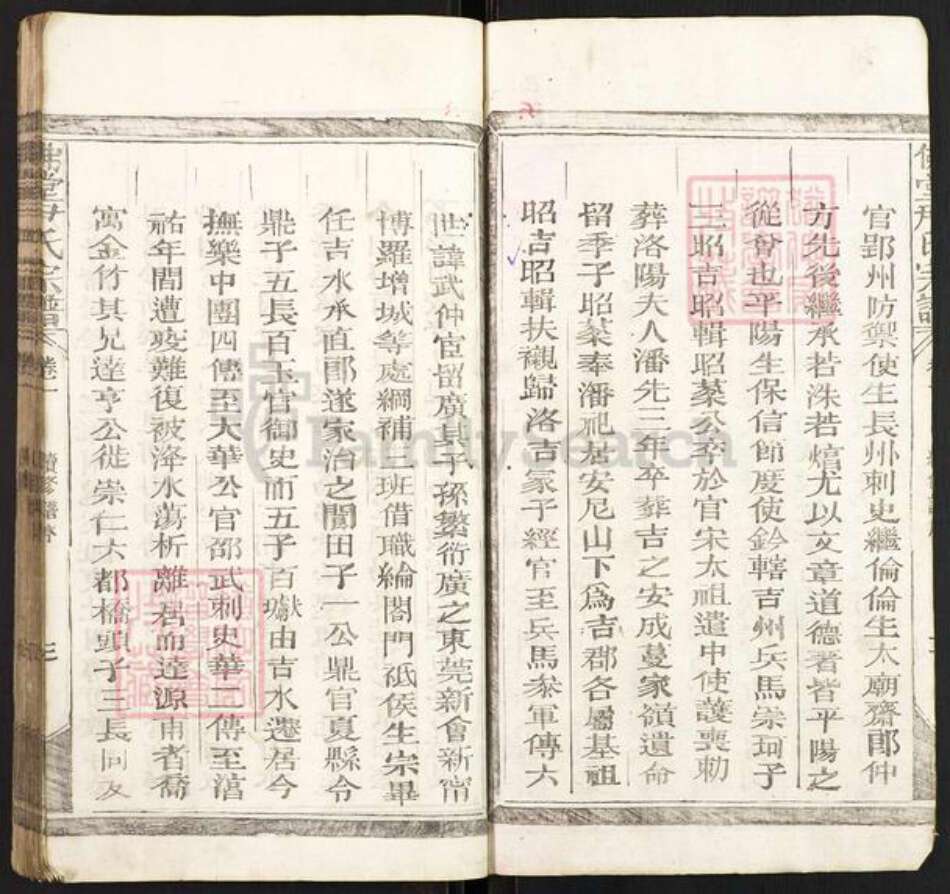 官郢州防禦使生長州刺史繼倫倫生太廟齋郎仲
方先後繼承若洙若熺尤以文章道德著皆平陽之
從會也平陽生保信節度使鈐轄吉州兵馬崇珂子
三昭吉昭輯昭菜公卒於官宋太祖遣中使護喪勅
葬洛陽夫人潘先三年卒葬吉之安成蔓家嶺遺命
留季子昭菜奉潘祀居安尼山下爲吉郡各屬基祖
昭吉昭輯扶櫬歸洛吉家于經官至兵馬叅軍傳六
世諱武仲宦留廣其子孫繁衍廣之東莞新會新甯
博羅增城等處綱補三班借職綸閤門祗侯生宗畢
任吉水承直郎遂家治之闤田子一公鼎官夏縣令
鼎子五長百玉官御史而五子百巘由吉水遷居今
撫樂中團四傳至大華公官邵武刺史華二傳至涫
祐年間遭变難復被洚水蕩析離居而達源甫者喬
寓金竹其兄達亨公徙崇仁六都橋頭子三長同友
佛堂 氏宗譜 卷一 續修譜 三
FamilySearch